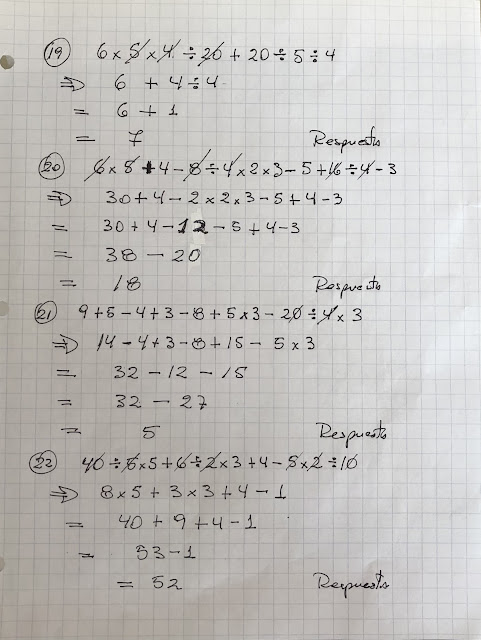 19 6 × 5 × 4 ÷ 20 + 20 ÷ 5 ÷ 4
⇒ 6 + 4 ÷ 4
= 6 + 1
= 7 Respuesta
20 6 × 5 + 4 - 8 ÷ 4 × 2 × 3 - 5 + 16 ÷ 4 - 3
⇒ 30 + 4 - 2 × 2 × 3 - 5 + 4 - 3
= 30 + 4 - 12 - 5 + 4 - 3
= 38 - 20
= 18 Respuesta
21 9 + 5 - 4 + 3 - 8 + 5 × 3 - 20 ÷ 4 × 3
⇒ 14 - 4 + 3 - 8 + 15 - 5 × 3
= 32 - 12 - 15
= 32 - 27
= 5 Respuesta
22 40 ÷ 5 × 5 + 6 ÷ 2 × 3 + 4 - 5 × 2 ÷ 10
⇒ 8 × 5 + 3 × 3 + 4 - 1
= 40 + 9 + 4 - 1
= 53 - 1
= 52 Respuesta